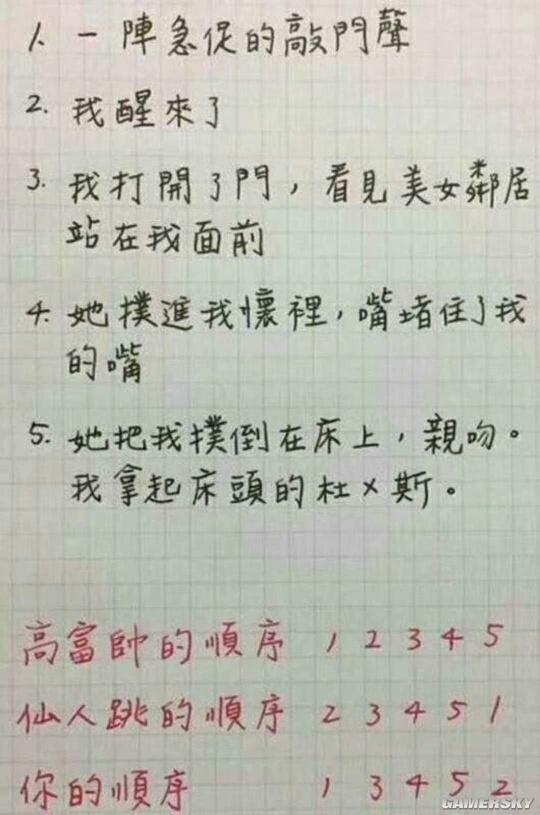 1. 一陣急促的敲門聲
2. 我醒來了
3. 我打開了門，看見美女鄰居
站在我面前
4. 她撲進我懷裡，嘴堵住了我
的嘴
5. 她把我撲倒在床上，親吻。
我拿起床頭的杜×斯。
高富帥的順序 1 2 3 4 5
仙人跳的順序 2 3 4 5 1
你的順序 1 3 4 5 2
GAMERSKY